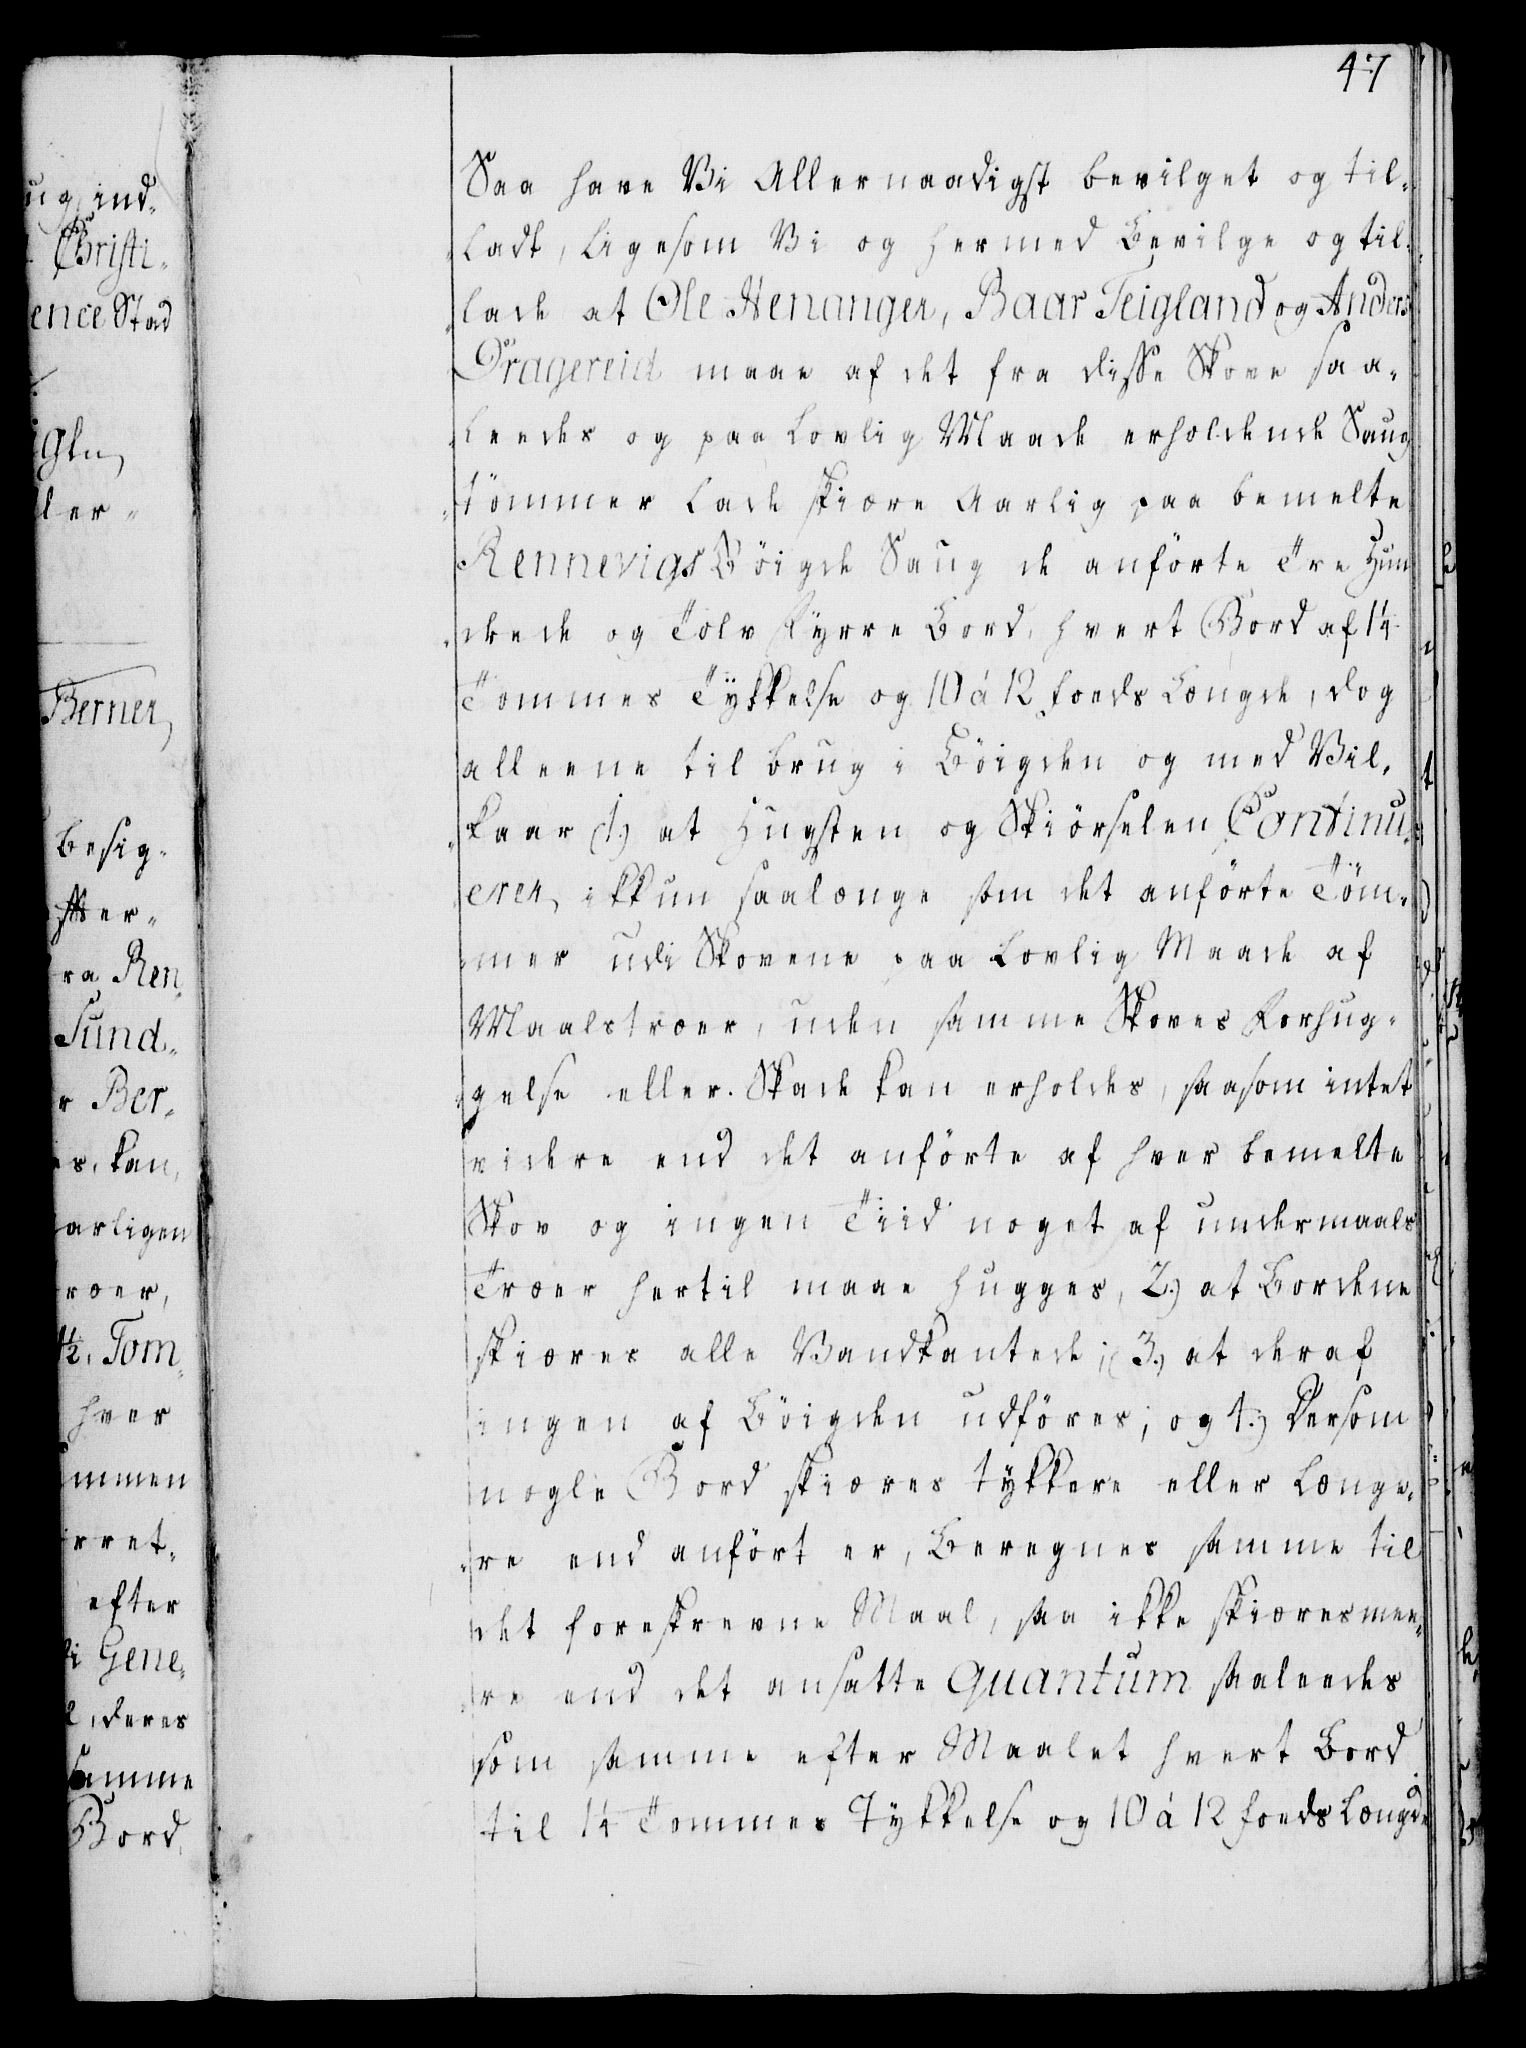 47
Saa have Vi Allernaadigst bevilget og til-
ladt, ligesom Vi og hermed Bevilge og til-
lade at Ole Henanger, Baar Teigland og Anders
Dragereid maae af det fra disse Skove saa-
leedes og paa Lovlig Maade erholdende Saug
tömmer lade skiære Aarlig paa bemelte
Rennevigs Böigde Saug de anförte Tre Hun
drede og Tolv Fyrre Bord, hvert Bord af 1¼
Tommes Tykkelse og 10 á 12 foeds Længde, dog
alleene til brug i Böigden og med Vil-
kaar 1.) at Hugsten og Skiörselen Continu-
erer, ikkun saalænge som det anförte Töm-
mer udi Skovene paa Lovlig Maade af
Maalstræer, uden samme Skoves Forhug-
gelse eller Skade kan erholdes, saasom intet
videre end det anförte af hver bemelte
Skov og ingen Tiid noget af undermaals
Træer hertil maae hugges, 2.) at Bordene
skiæres alle Vandkantede; 3.) at deraf
ingen af Böigden udföres; og 4.) Dersom
nogle Bord skiæres tykkere eller Længe-
re end anfört er, Beregnes samme til
det foreskrevne Maal, saa ikke skiæres mee-
re end det ansatte Quantum saaleedes
som samme efter Maalet hvert Bord
til 1¼ Tommes Tykkelse og 10 á 12 foeds Længde